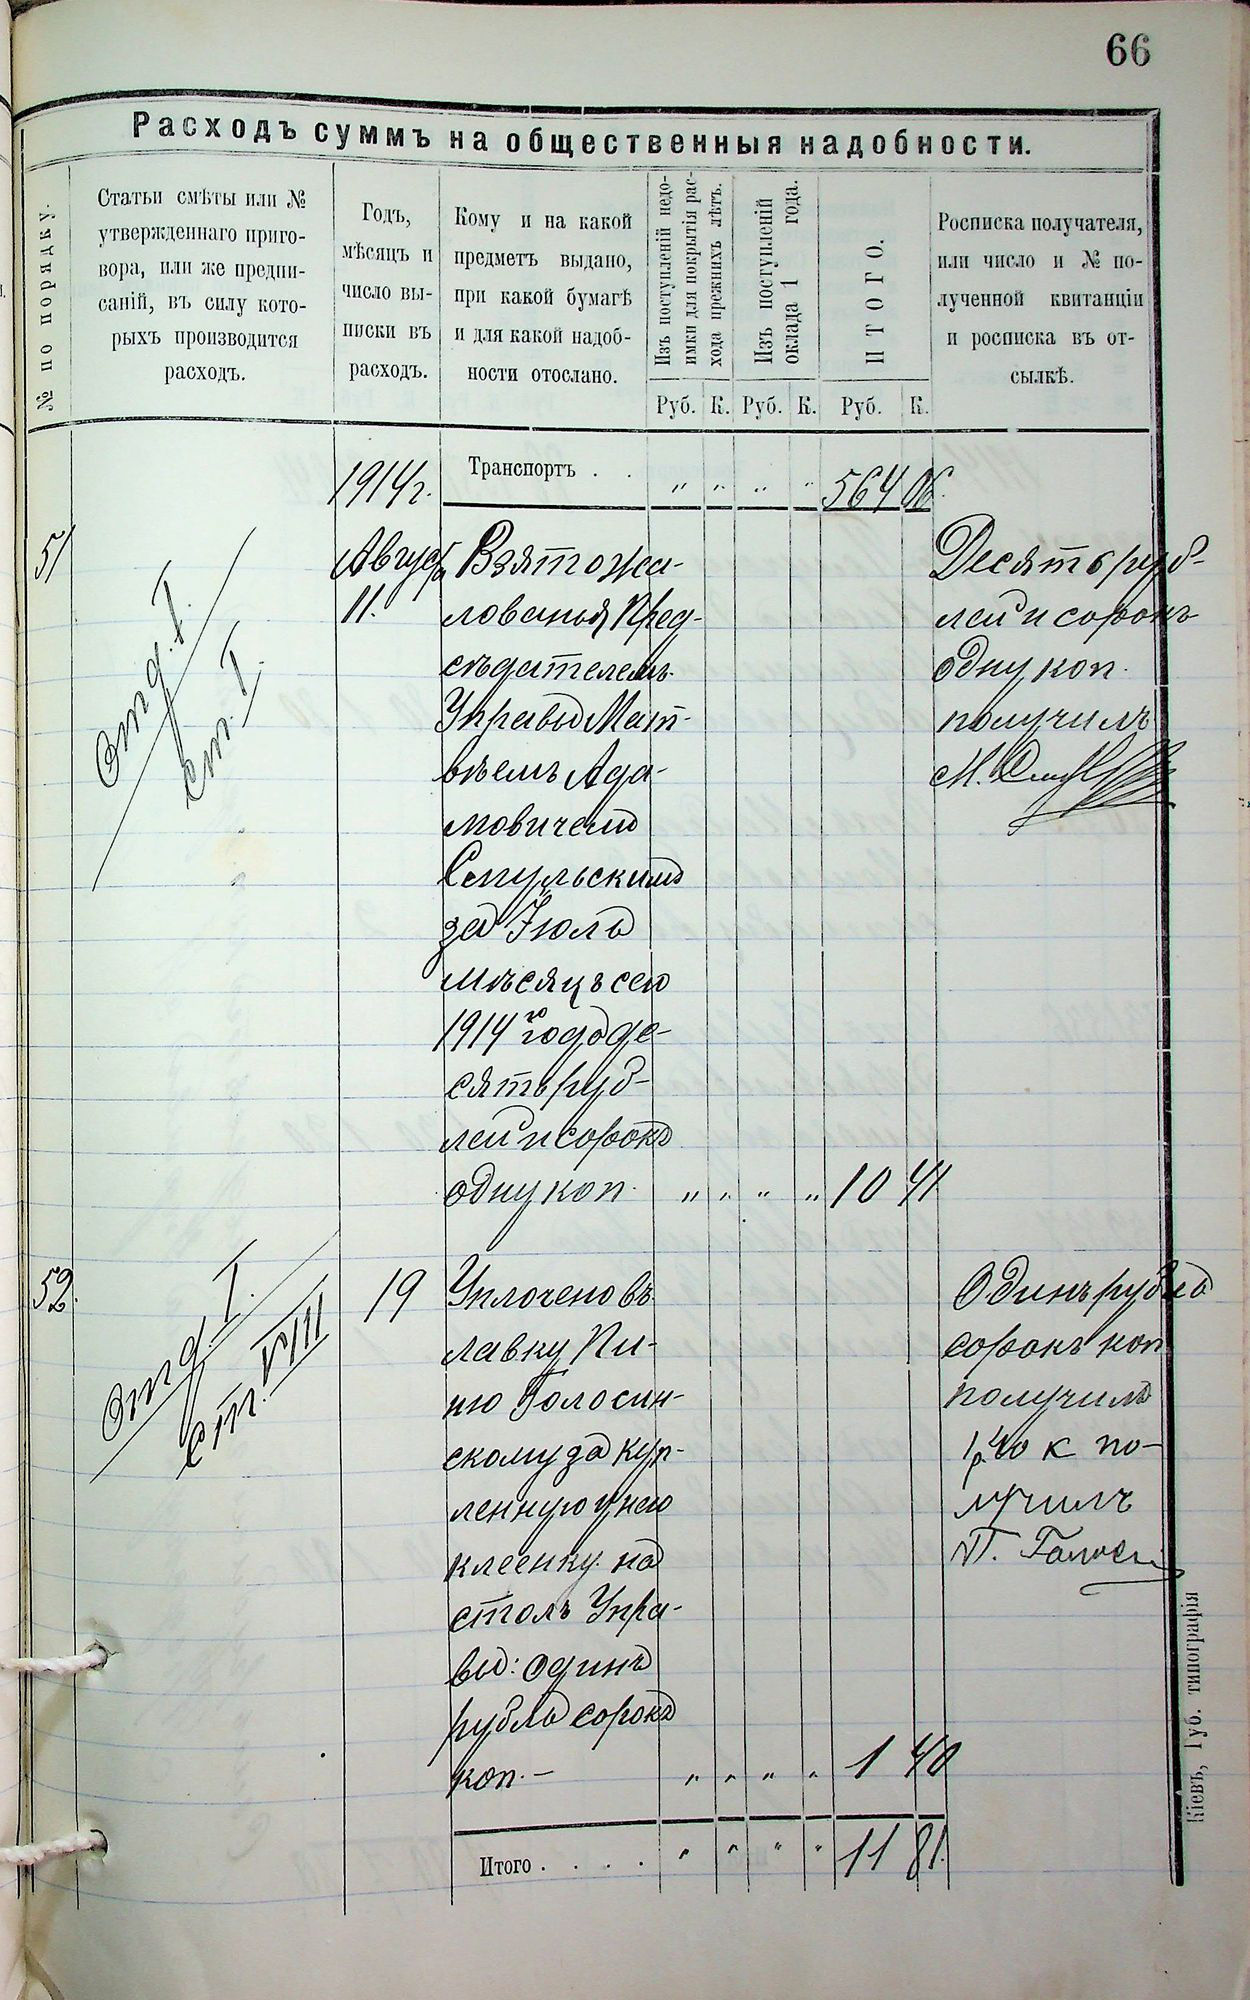 66
Расходъ суммъ на общественныя надобности.
№ по порядку.
Статьи смѣты или №
утвержденнаго приго-
вора, или же предпи-
саній, въ силу кото-
рыхъ производится
расходъ.
Годъ,
мѣсяцъ и
число вы-
писки въ
расходъ.
Кому и на какой
предметъ выдано,
при какой бумагѣ
и для какой надоб-
ности отослано.
Изъ поступленій недо-
имки для покрытія рас-
хода прежнихъ лѣтъ.
Изъ поступленій
оклада 1 года.
ИТОГО.
Росписка получателя,
или число и № по-
лученной квитанціи
и росписка въ от-
сылкѣ.
Руб. К. Руб. К. Руб. К.
1914 г. Транспортъ . . „ „ „ „ 564 06.
51
Отд. I.
Ст. I.
11.
Взято жа-
лованья Пред-
сѣдателемъ
Управы Мат-
вѣемъ Ада-
мовичемъ
за Іюль
мѣсяцъ сего
1914 го года де-
сять руб-
лей и сорокъ
одну коп. „ „ „ „ 10 41
Десять руб-
лей и сорокъ
одну коп.
получилъ
М.
52.
Отд. I.
Ст. VIII
19
Уплочено въ
лавку Пи-
нію Голосин-
скому за куп-
ленную у него
клеенку на
столъ Упра-
вы: одинъ
рубль сорокъ
коп. — „ „ „ „ 1 40
Одинъ рубль
сорокъ коп
получилъ
1 р. 40 к по-
лучилъ
П.
Итого . . . . „ „ „ „ 11 81.
Кіевъ, Губ. типографія